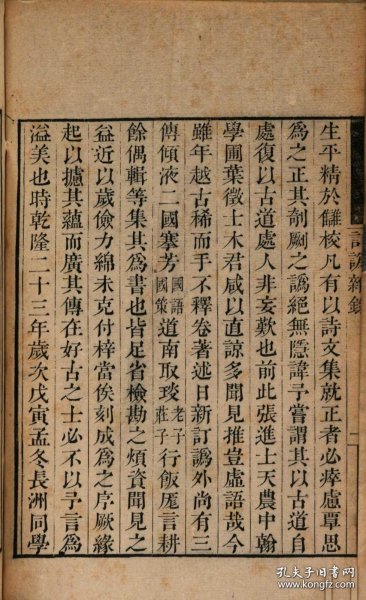 生平精於讎校凡有以詩文集就正者必瘁慮覃思
為之正其剞劂之譌絕無隱諱予嘗謂其以古道自
處復以古道處人非妄歎也前此張進士天農中翰
學圃葉徵士木君咸以直諒多聞見推豈虛語哉今
雖年越古稀而手不釋卷著述日新訂譌外尚有三
傳傾液二國搴芳國語國策道南取琰老子莊子行飯巵言耕
餘偶輯等集其為書也皆足省檢勘之煩資聞見之
益近以歲儉力綿未克付梓當俟刻成為之序厥緣
起以攄其蘊而廣其傳在好古之士必不以予言為
溢美也時乾隆二十三年歲次戊寅孟冬長洲同學
訂譌雜錄
二
孔夫子旧书网
www.kongfz.com